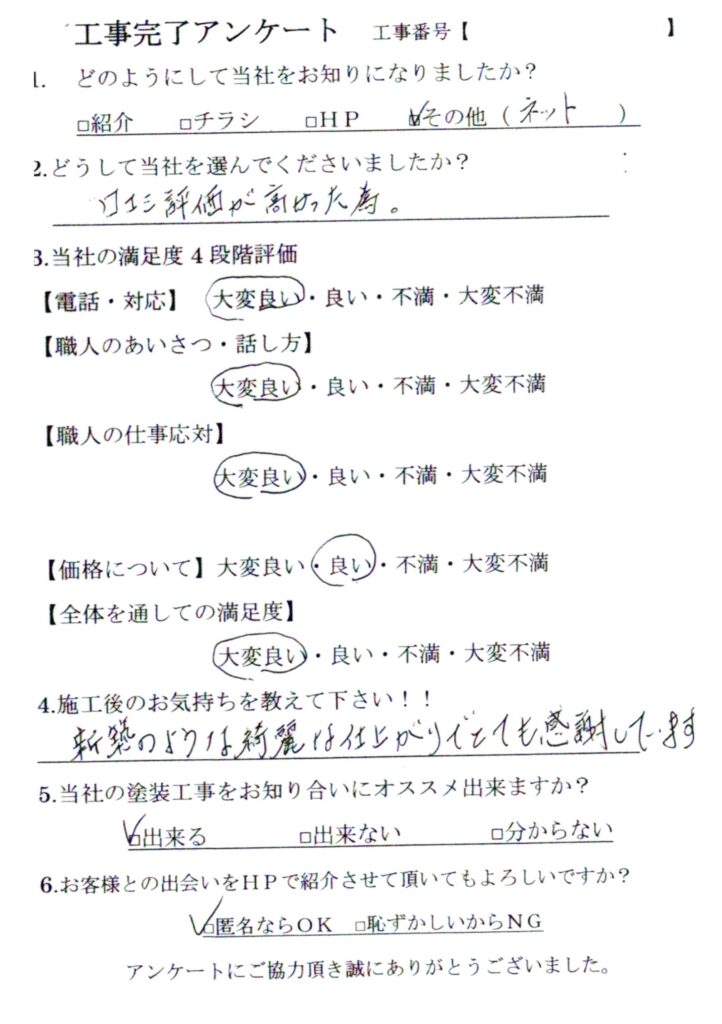 工事完了アンケート 工事番号【 】
1. どのようにして当社をお知りになりましたか？
□紹介 □チラシ □ＨＰ ☑その他（ ネット ）
2.どうして当社を選んでくださいましたか？
口コミ評価が高かった為。
3.当社の満足度４段階評価
【電話・対応】 大変良い・良い・不満・大変不満
【職人のあいさつ・話し方】
大変良い・良い・不満・大変不満
【職人の仕事応対】
大変良い・良い・不満・大変不満
【価格について】大変良い・良い・不満・大変不満
【全体を通しての満足度】
大変良い・良い・不満・大変不満
4.施工後のお気持ちを教えて下さい！！
新築のような綺麗な仕上がりでとても感謝しています
5.当社の塗装工事をお知り合いにオススメ出来ますか？
☑出来る □出来ない □分からない
6.お客様との出会いをＨＰで紹介させて頂いてもよろしいですか？
☑匿名ならＯＫ □恥ずかしいからＮＧ
アンケートにご協力頂き誠にありがとうございました。